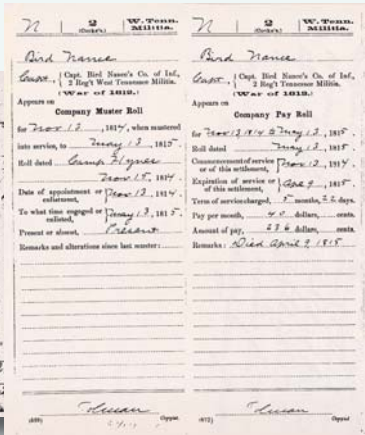 N 2 W. Tenn. Militia.
(Cocke's.)
Bird Nance
Capt., Capt. Bird Nance's Co. of Inf., 2 Reg't West Tennessee Militia.
(War of 1812.)
Appears on
Company Muster Roll
for Nov 13, 1814, when mustered
into service, to May 13, 1815.
Roll dated Camp
Nov 15, 1814.
Date of appointment or enlistment, Nov 13, 1814.
To what time engaged or enlisted, May 13, 1815.
Present or absent, Present
Remarks and alterations since last muster:
(639) Copyist.
N 2 W. Tenn. Militia.
(Cocke's.)
Bird Nance
Capt., Capt. Bird Nance's Co. of Inf., 2 Reg't Tennessee Militia.
(War of 1812.)
Appears on
Company Pay Roll
for Nov 13 1814 to May 13, 1815.
Roll dated May 13, 1815.
Commencement of service or of this settlement, Nov 13, 1814.
Expiration of service or of this settlement, Apl 9, 1815.
Term of service charged, months, 22 days.
Pay per month, 40 dollars, cents.
Amount of pay, 236 dollars, cents.
Remarks: Died April 9 1815
(672) Copyist.